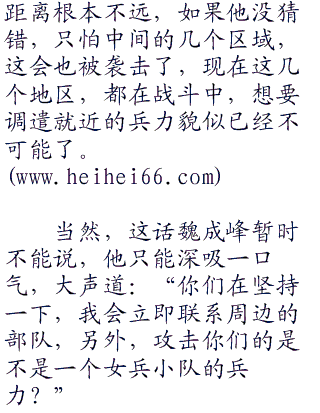 距离根本不远，如果他没猜
错，只怕中间的几个区域，
这会也被袭击了，现在这几
个地区，都在战斗中，想要
调遣就近的兵力貌似已经不
可能了。
(www.heihei66.com)
当然，这话魏成峰暂时
不能说，他只能深吸一口
气，大声道：“你们在坚持
一下，我会立即联系周边的
部队，另外，攻击你们的是
不是一个女兵小队的兵
力？”